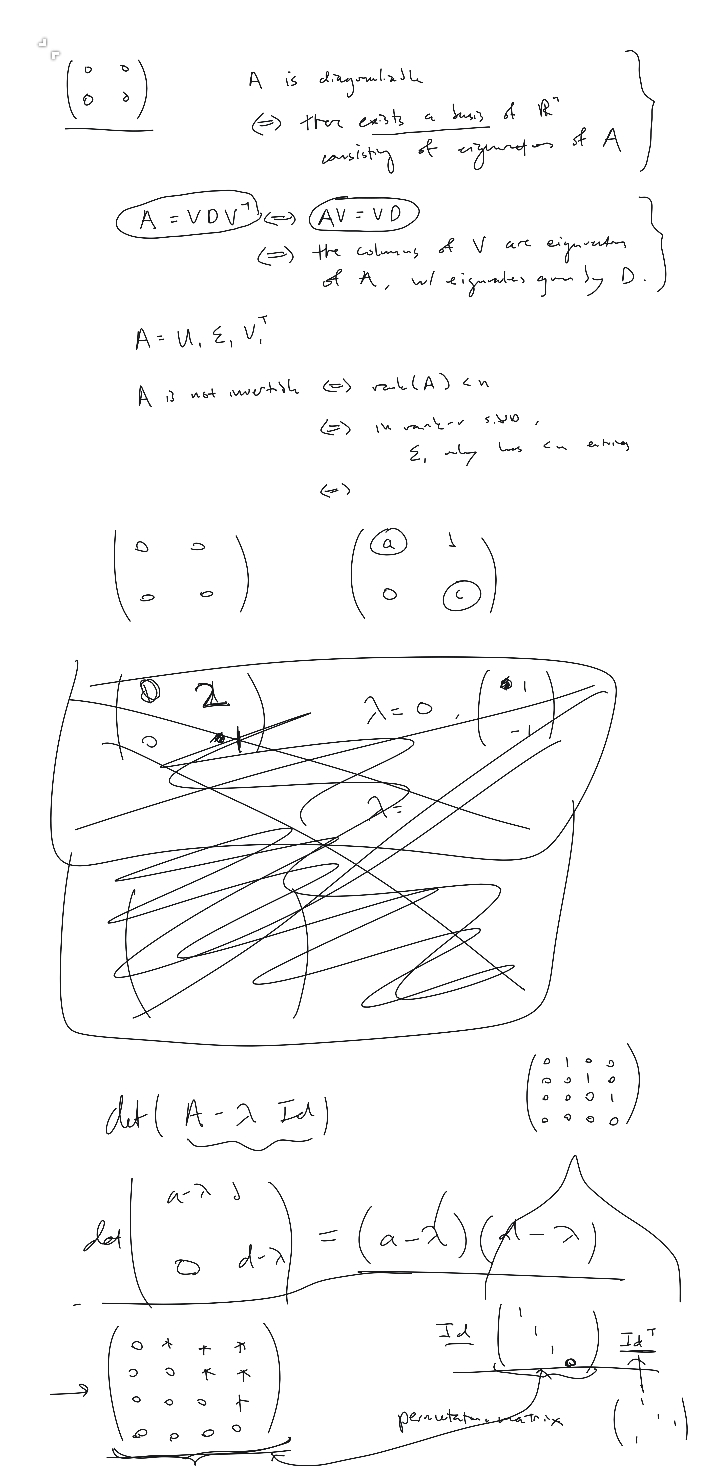 ( 0 0
0 0 )
A is diagonalizable
⟺ there exists a basis of ℝⁿ
consisting of eigenvectors of A
A = VDVᵀ ⟺ AV = VD
⟺ the columns of V are eigenvectors
of A, w/ eigenvalues given by D.
A = U₁ Σ₁ V₁ᵀ
A is not invertible ⟺ rank(A) < n
⟺ in rank-r SVD,
Σ₁ only has < n entries
⟺
( 0 0
0 0 )
( a b
0 c )
( 0 2
0 1 )
λ = 0 ,
( 1
-1 )
λ =
( 0 1 0 0
0 0 1 0
0 0 0 1
0 0 0 0 )
det( A - λ Id )
det( a-λ b
0 d-λ ) = (a-λ)(d-λ)
Id ( 1
1
1
0 ) Idᵀ
→ ( 0 * * *
0 0 * *
0 0 0 *
0 0 0 0 )
permutation matrix